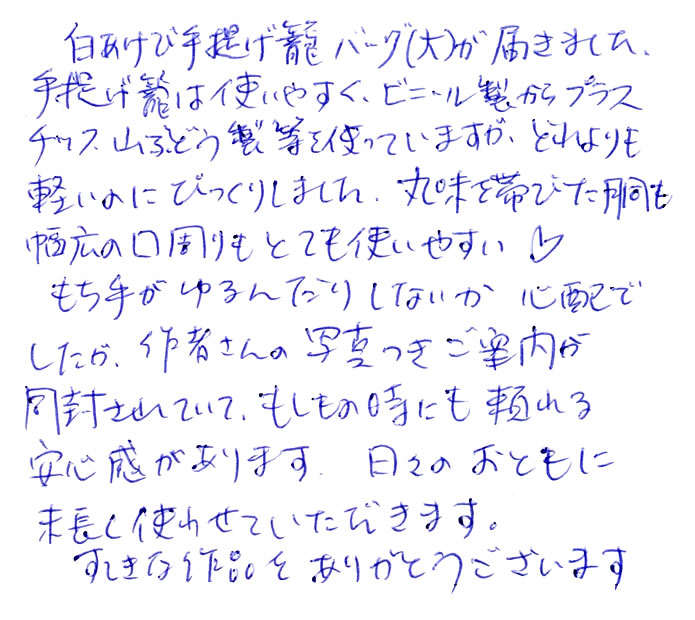 白あけび手提げ籠バーグ(大)が届きました、
手提げ籠は使いやすく、ビニール製からプラス
チックス 山ぶどう製等を使っていますが、どれよりも
軽いのにびっくりしました、丸味を帯びた胴も
幅広の口周りもとても使いやすい♡
もち手がゆるんだりしないか 心配で
したが、作者さんの写真つきご案内が
同封されていて、もしもの時にも頼れる
安心感があります、日々のおともに
末長く使わせていただきます。
すてきな作品を ありがとうございます